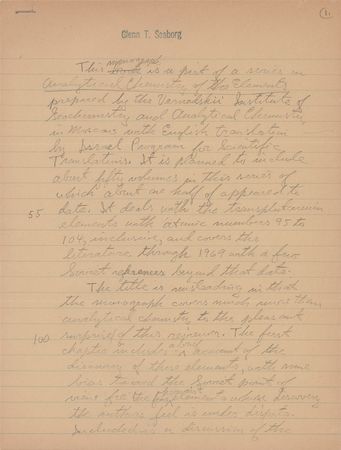 1.
Glenn T. Seaborg
This monograph is a part of a series on
Analytical Chemistry of the Elements
prepared by the Vernadskii Institute of
Geochemistry and Analytical Chemistry
in Moscow with English translation
by Israel Program for Scientific
Translations. It is planned to include
about fifty volumes in this series of
which about one half of appeared to
55 date. It deals with the transplutonium
elements with atomic numbers 95 to
104, inclusive, and covers the
literature through 1969 with a few
Soviet references beyond that date.
The title is misleading in that
the monograph covers much more than
analytical chemistry to the pleasant
100 surprise of this reviewer. The first
chapter includes account of the
discovery of these elements, with some
bias toward the Soviet point of
view for the elements whose discovery
the authors feel is under dispute.
Included is a discussion of the